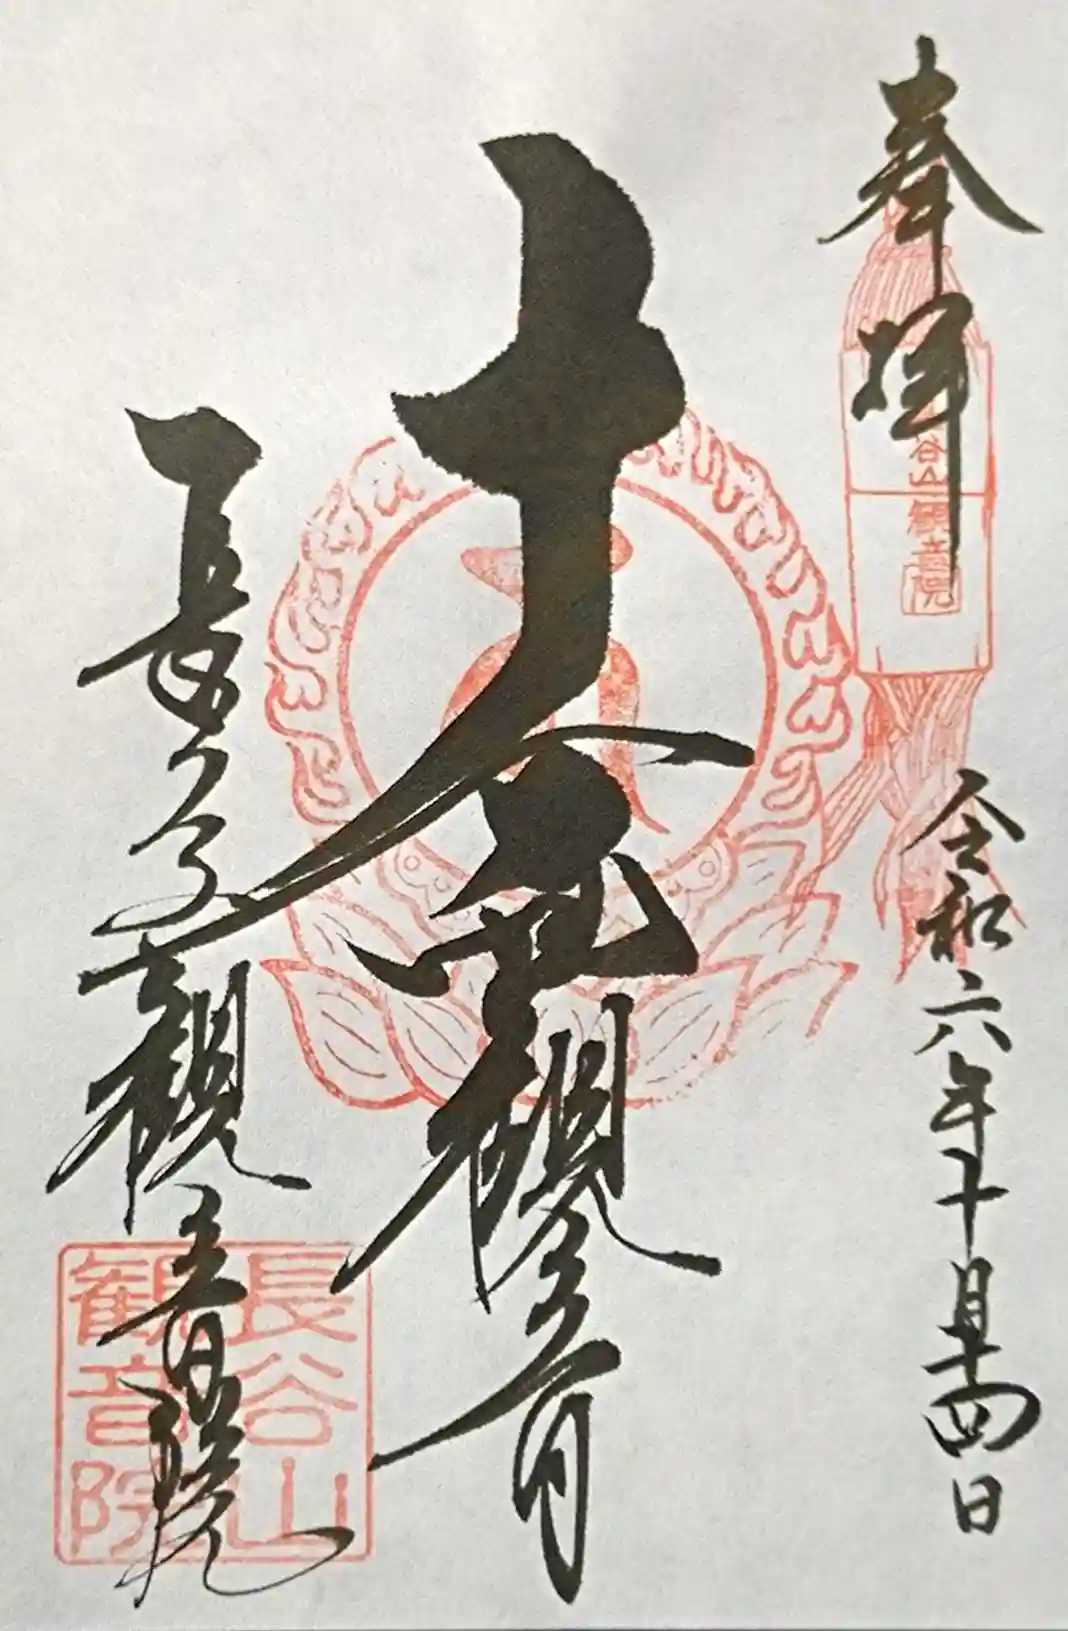 奉拝
令和六年十月十四日
長谷山
観音院
十一面観世音
長谷山観音院
長谷山
観音院